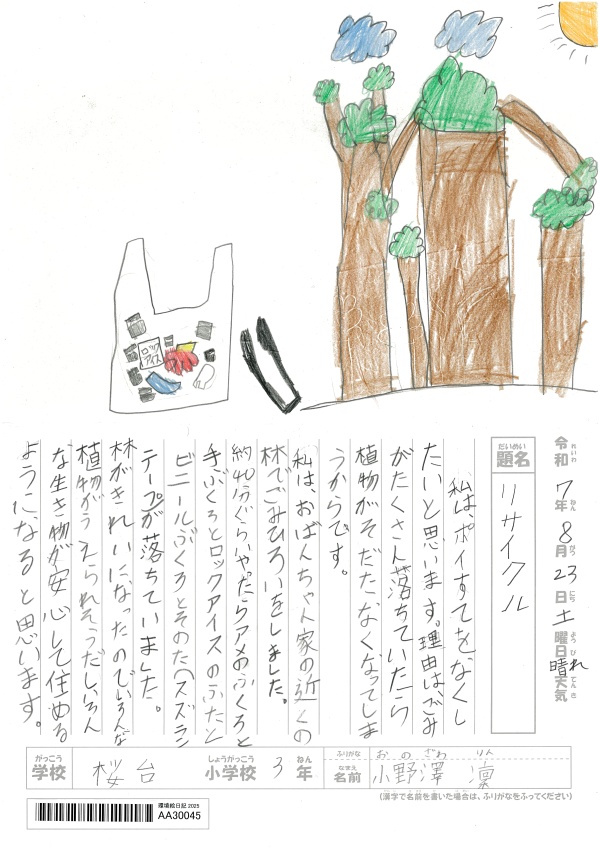 ロック
アイス
令和7年8月23日土曜日晴れ天気
れいわ ねん がつ にち ようび はれ てんき
だいめい
題名
リサイクル
私は、ポイすてをなくし
たいと思います。理由はごみ
がたくさん落ちていたら
植物がそだたなくなってしま
うからです。
私は、おばあちゃん家の近くの
林でごみひろいをしました。
約40分ぐらいやったらアメのふくろと
手ぶくろとロックアイスのふたと
ビニールぶくろとそのた(スズラン
テープが落ちていました。
林がきれいになったのでいろんな
植物がうえられそうだしいろん
な生き物が安心して住める
ようになると思います。
がっこう しょうがっこう ねん ふりがな おのざわ りん
学校 桜台 小学校 3年 なまえ 名前 小野澤 凜
(漢字で名前を書いた場合は、ふりがなをふってください)
環境絵日記 2025
AA30045